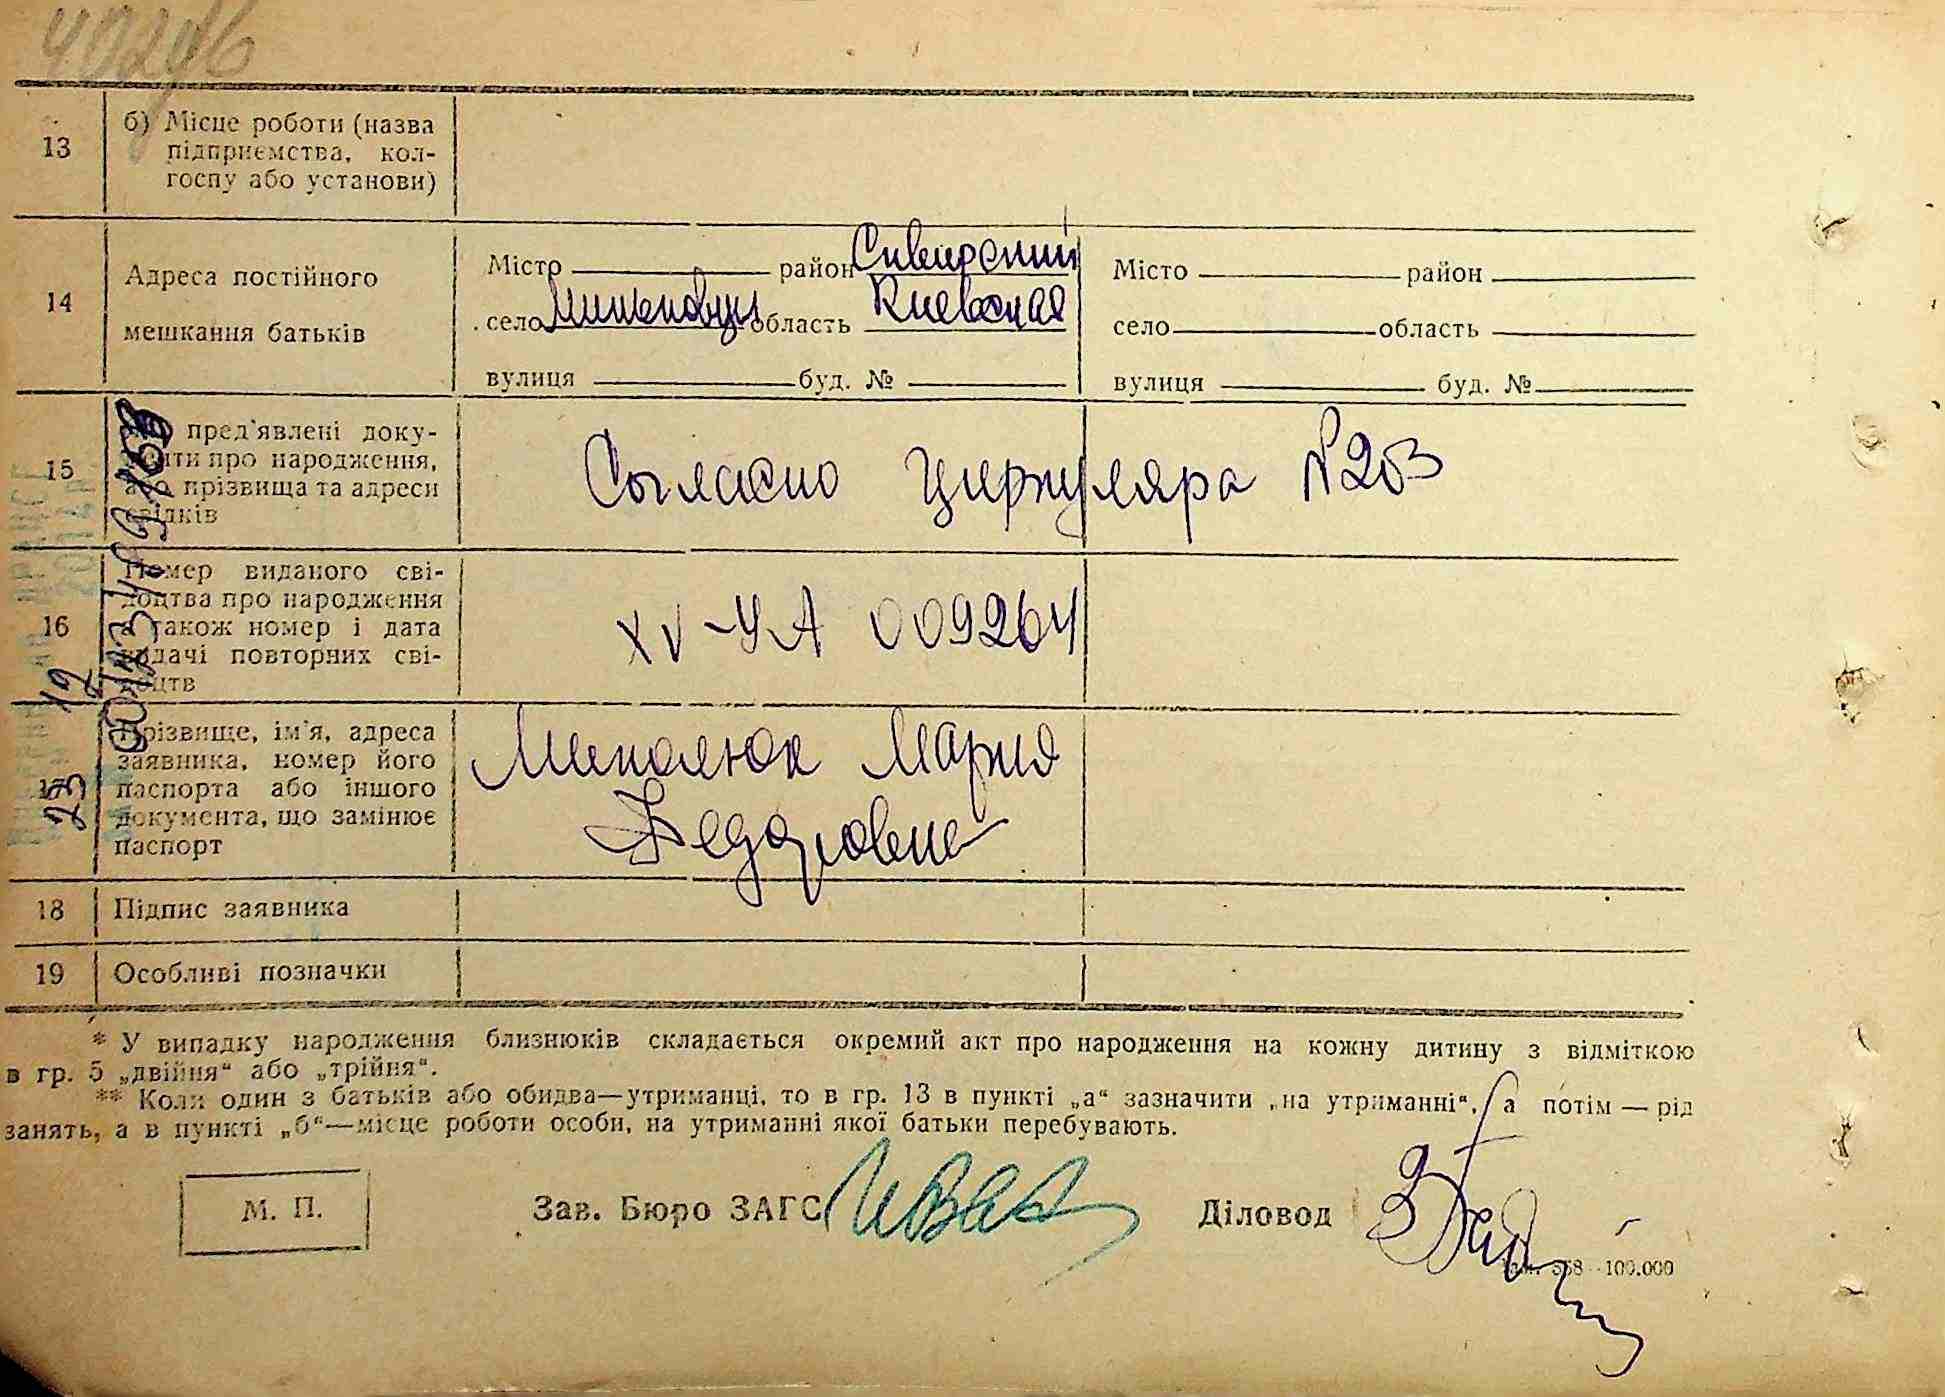 13
б) Місце роботи (назва
підприємства, кол-
госпу або установи)
14
Адреса постійного
мешкання батьків
Місто район Сквирский
село область Киевская
вулиця буд. №
Місто район
село область
вулиця буд. №
15
пред'явлені доку-
менти про народження,
або прізвища та адреси
свідків
Согласно Циркуляра №203
16
Номер виданого сві-
доцтва про народження
а також номер і дата
видачі повторних сві-
доцтв
XV-УА 009264
17
Прізвище, ім'я, адреса
заявника, номер його
паспорта або іншого
документа, що замінює
паспорт
Миколюк Мария
Федоровна
18
Підпис заявника
19
Особливі позначки
* У випадку народження близнюків складається окремий акт про народження на кожну дитину з відміткою
в гр. 5 „двійня“ або „трійня“.
** Коли один з батьків або обидва—утриманці, то в гр. 13 в пункті „а“ зазначити „на утриманні“, а потім — рід
занять, а в пункті „б“—місце роботи особи, на утриманні якої батьки перебувають.
М. П.
Зав. Бюро ЗАГС
Діловод
358—100.000